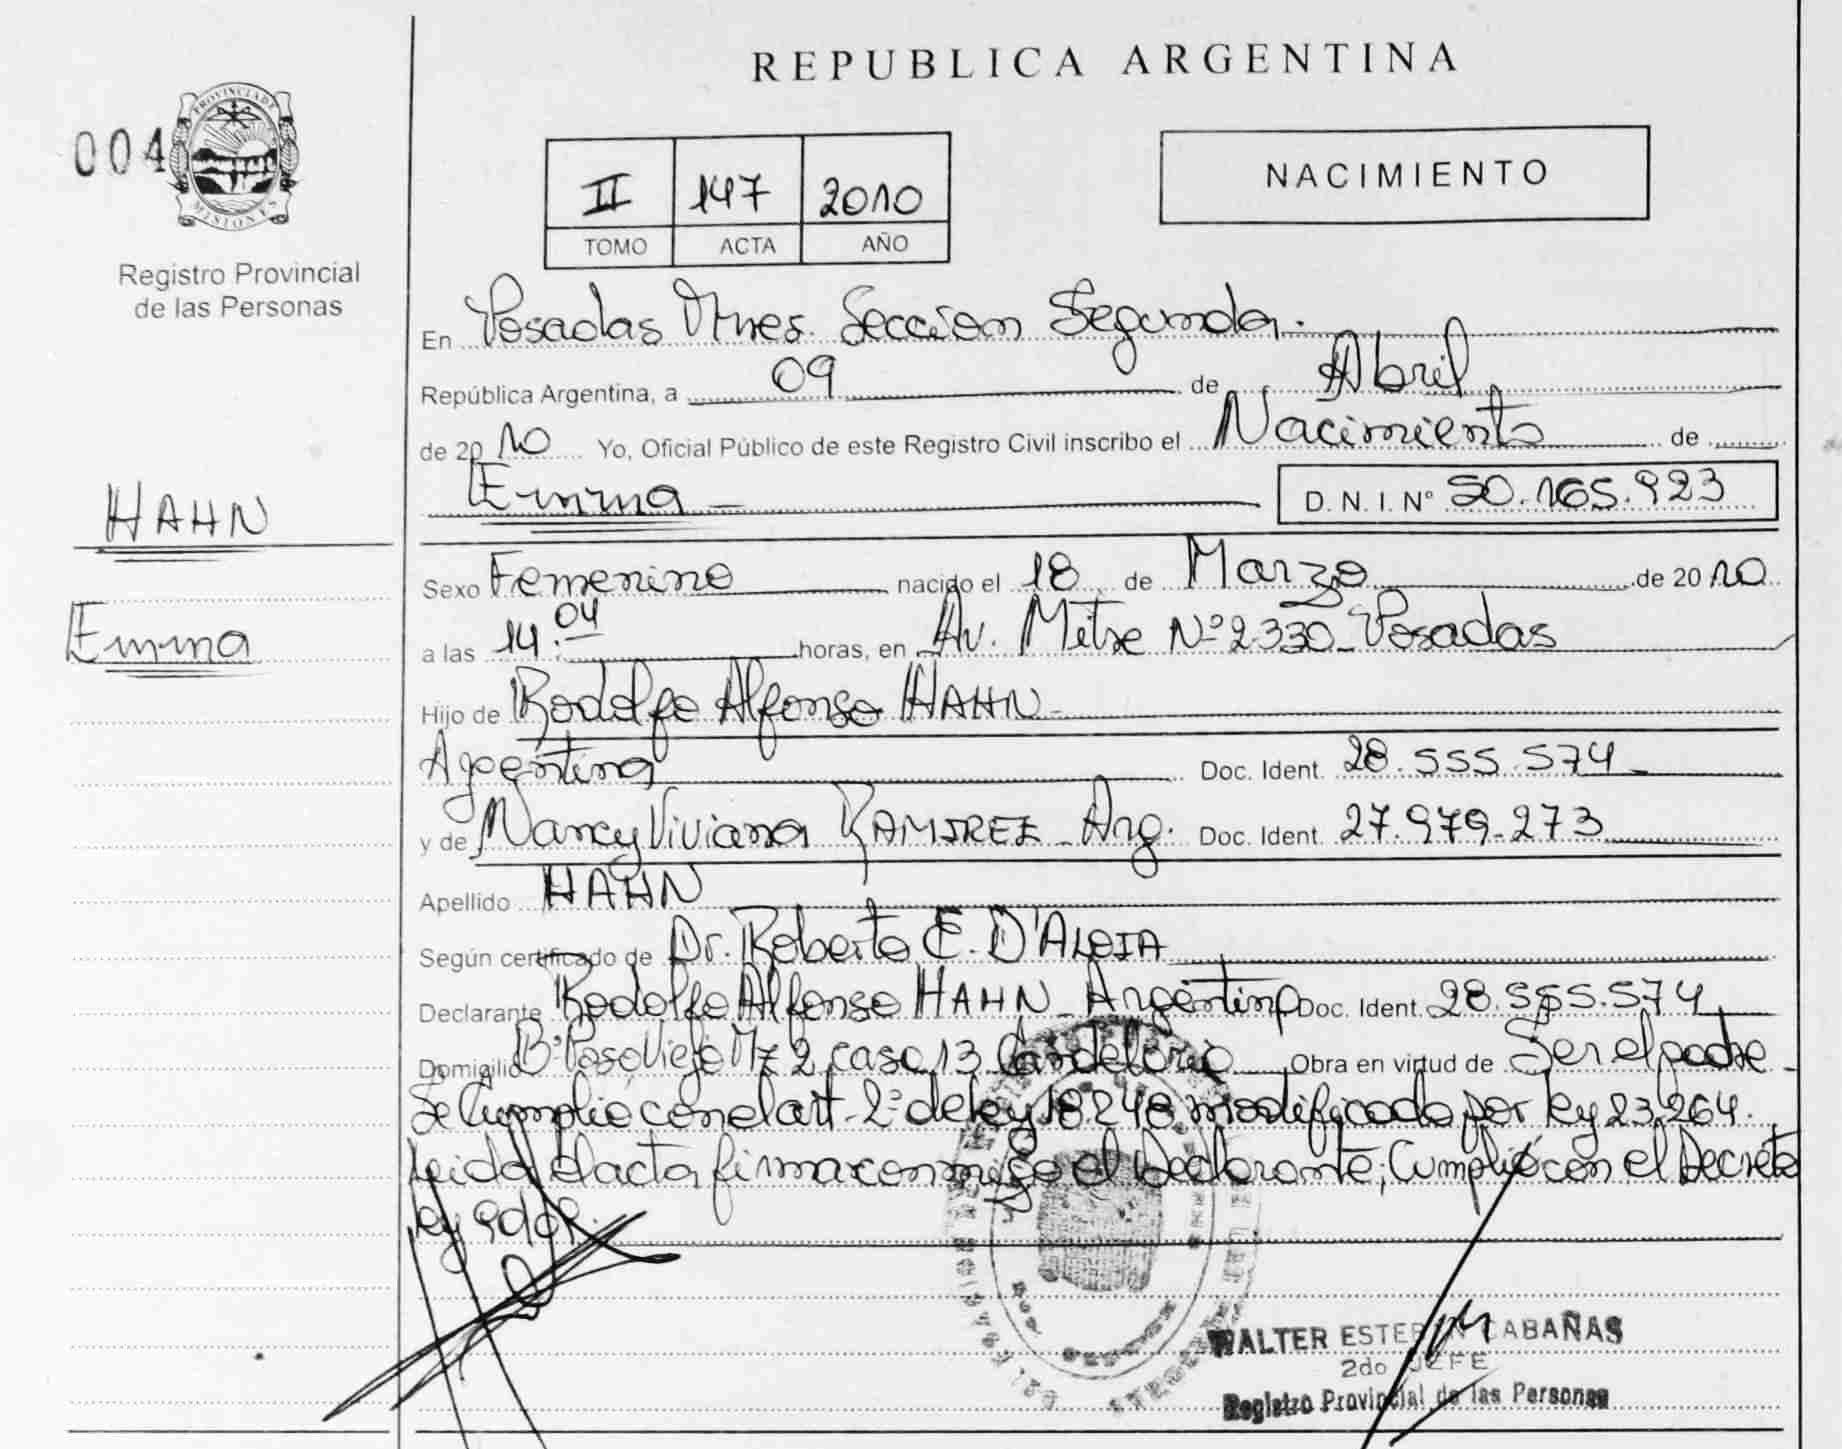 REPUBLICA ARGENTINA
004
PROVINCIA DE
MISIONES
Registro Provincial
de las Personas
II 147 2010
TOMO ACTA AÑO
NACIMIENTO
En Posadas Mnes. Seccion Segunda.
República Argentina, a 09 de Abril
de 2010 Yo, Oficial Público de este Registro Civil inscribo el Nacimiento de
Emma D.N.I. Nº 50.165.923
HAHN
Emma
Sexo Femenino nacido el 18 de Marzo de 2010
a las 14:04 horas, en Av. Mitre Nº 2.330 _ Posadas
Hijo de Rodolfo Alfonso HAHN _
Argentina Doc. Ident. 28.555.574 _
y de Nancy Viviana RAMIREZ _ Arg. Doc. Ident. 27.979.273
Apellido HAHN
Según certificado de Dr. Roberto E. D'ALOIA
Declarante Rodolfo Alfonso HAHN _ Argentino Doc. Ident. 28.555.574
Domicilio Bº Poso Viejo Mz 2 casa 13 Candelaria Obra en virtud de Ser el padre _
Se Cumplio con el art. 2º de ley 18248 modificado por ley 23.264.
Leida el acta firma conmigo el Declarante; Cumplio con el Decreto
ley
WALTER ESTEBAN CABAÑAS
2do JEFE
Registro Provincial de las Personas